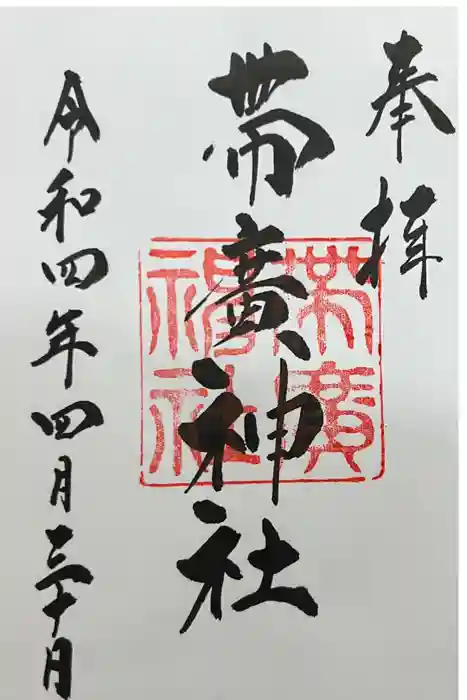 奉拝
帶廣神社
帯廣神社
令和四年四月三十月